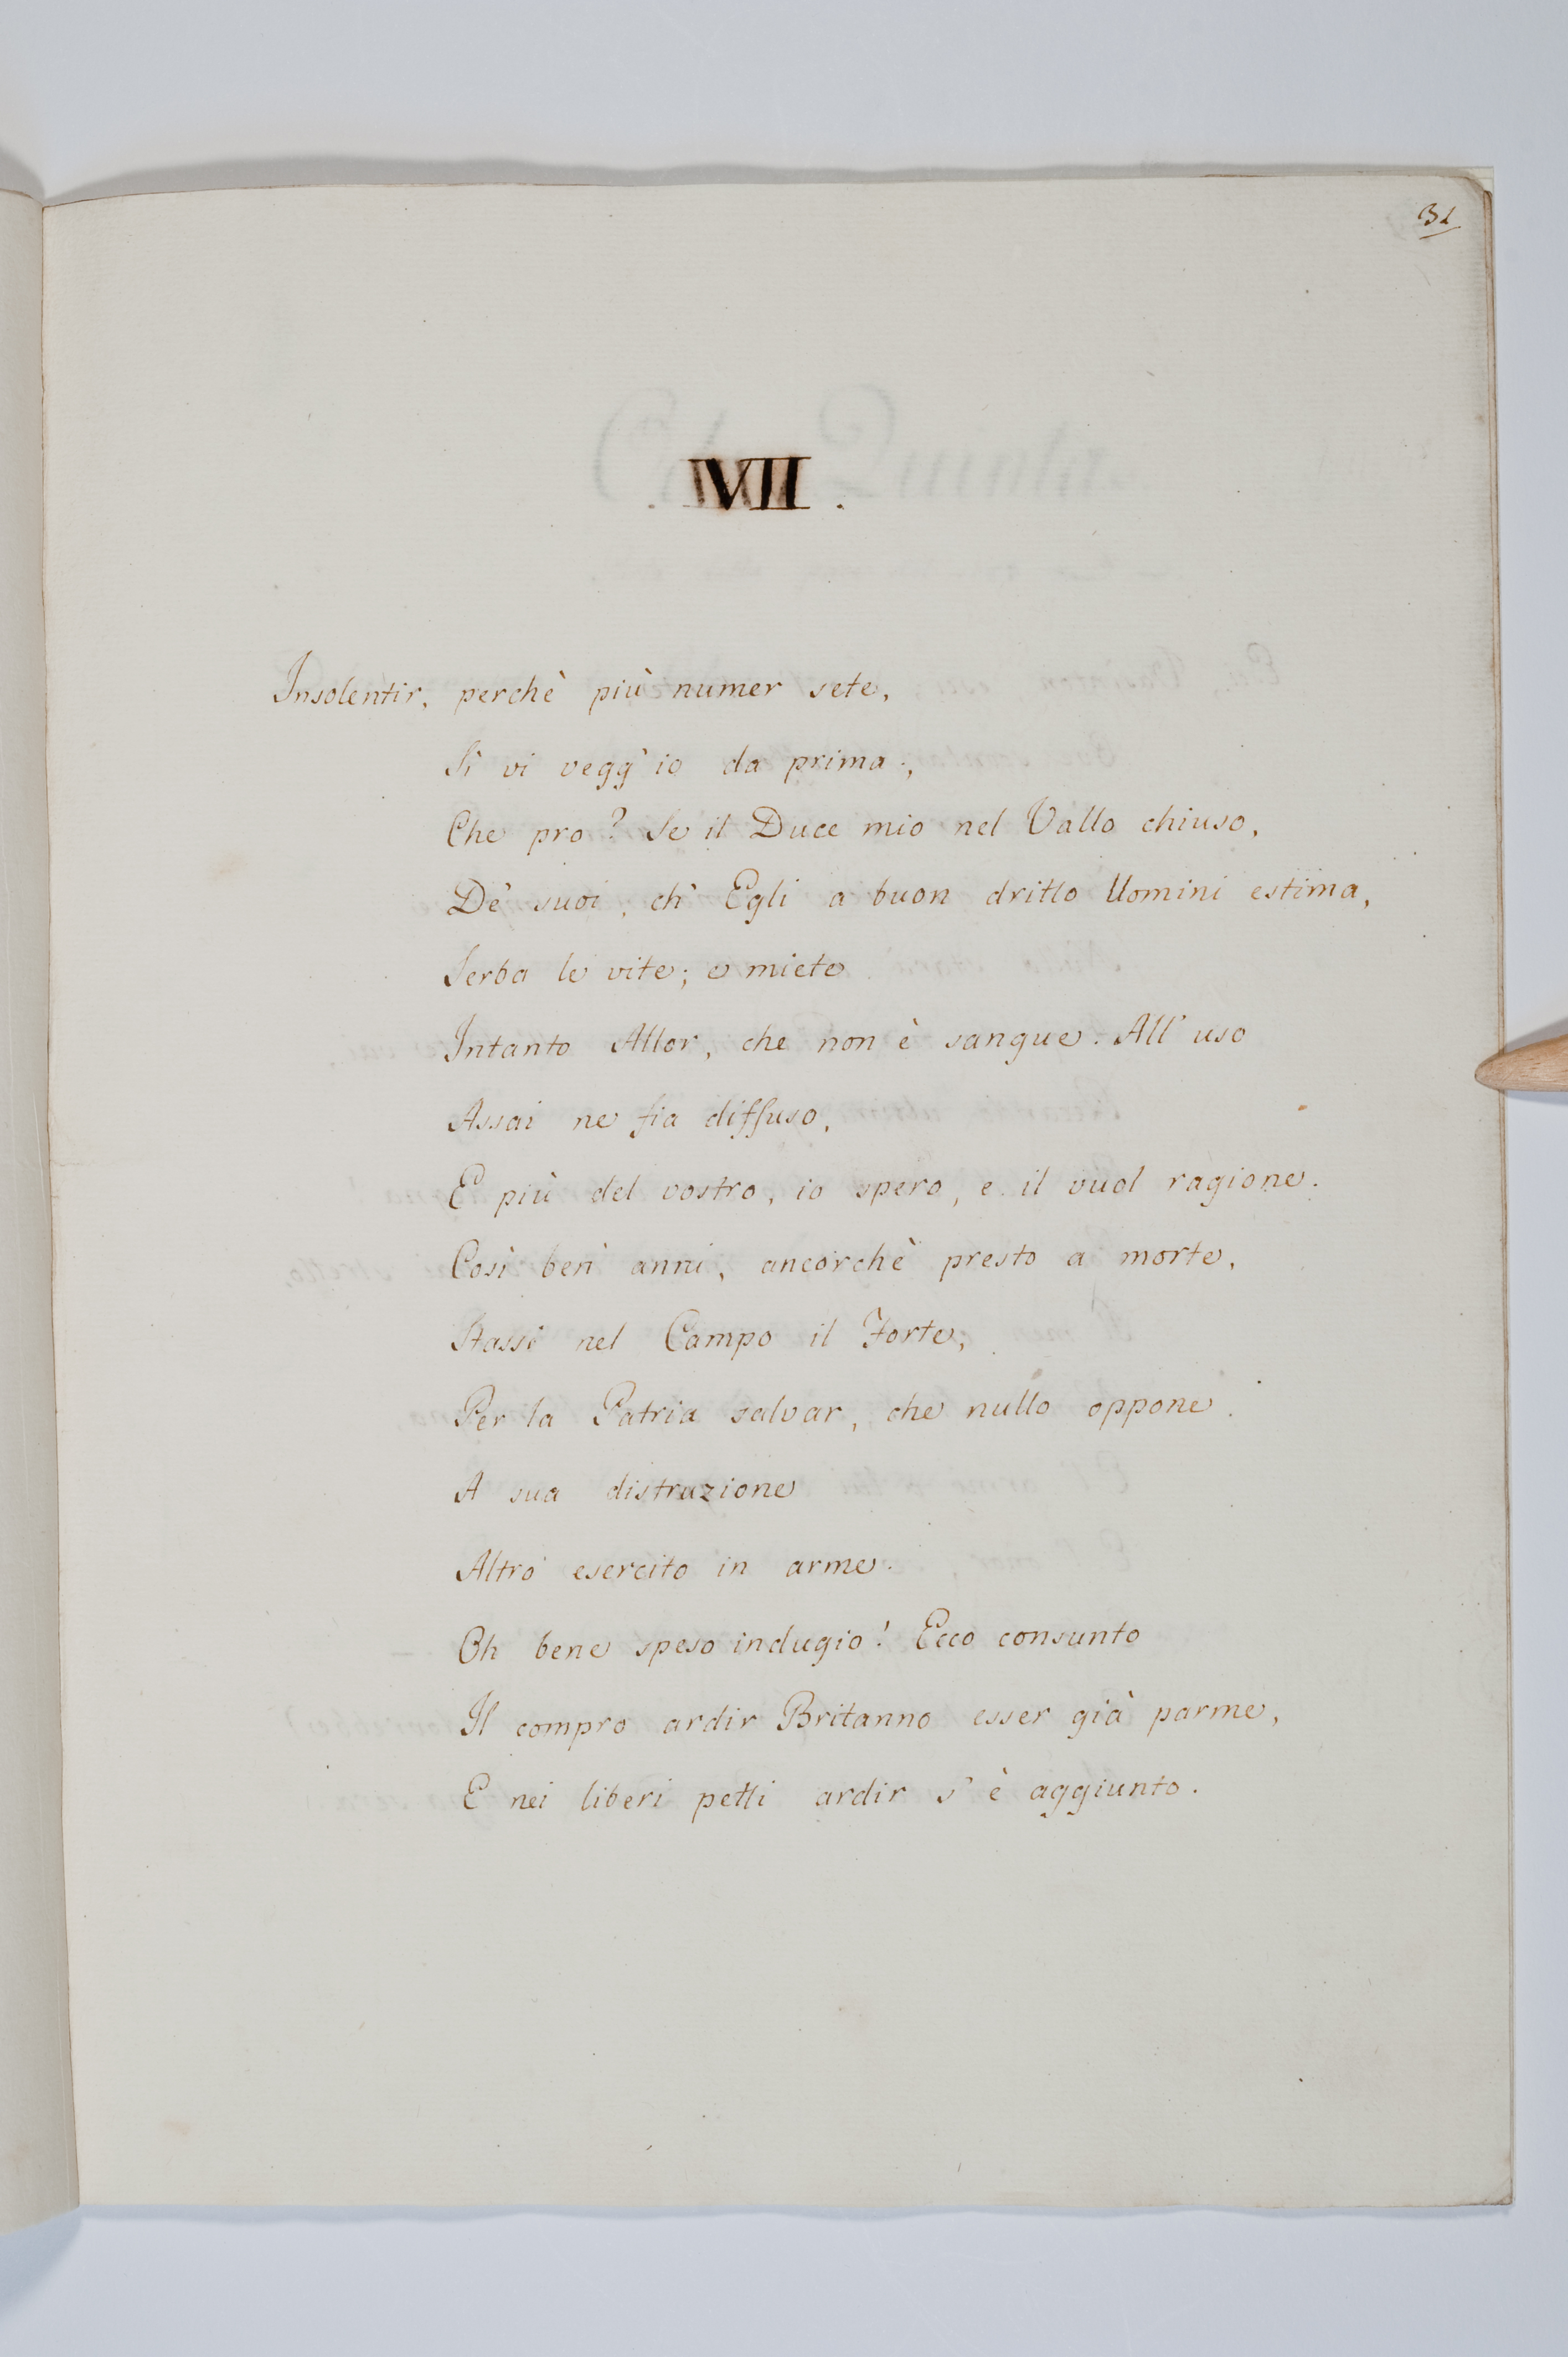 31
. VII .
Insolentir, perchè più numer sete,
Sì vi vegg'io da prima;
Che pro? Se il Duce mio nel Vallo chiuso,
De' suoi, ch' Egli a buon dritto Uomini estima,
Serba le vite; e miete
Intanto Allor, che non è sangue. All' uso
Assai ne fia diffuso,
E più del vostro, io spero, e il vuol ragione.
Così ben' anni, ancorchè presto a morte,
Stassi nel Campo il Forte;
Per la Patria salvar, che nullo oppone
A sua distruzione
Altro esercito in arme.
Oh bene speso indugio! Ecco consunto
Il compro ardir Britanno esser già parme,
E nei liberi petti ardir s' è aggiunto.